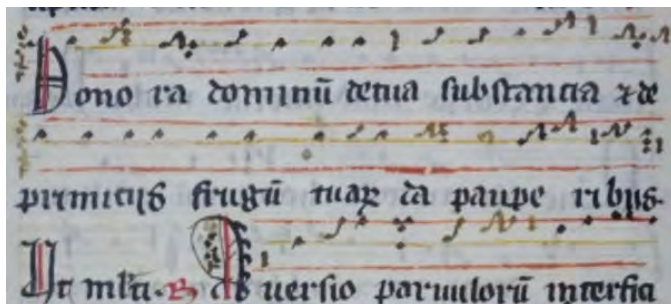 Hono ra dominū detua substancia ⁊ de
primicijs frugū tuaꝝ da paupe ribus.
Ut mlti. ℟ A uersio paruulorū interfici